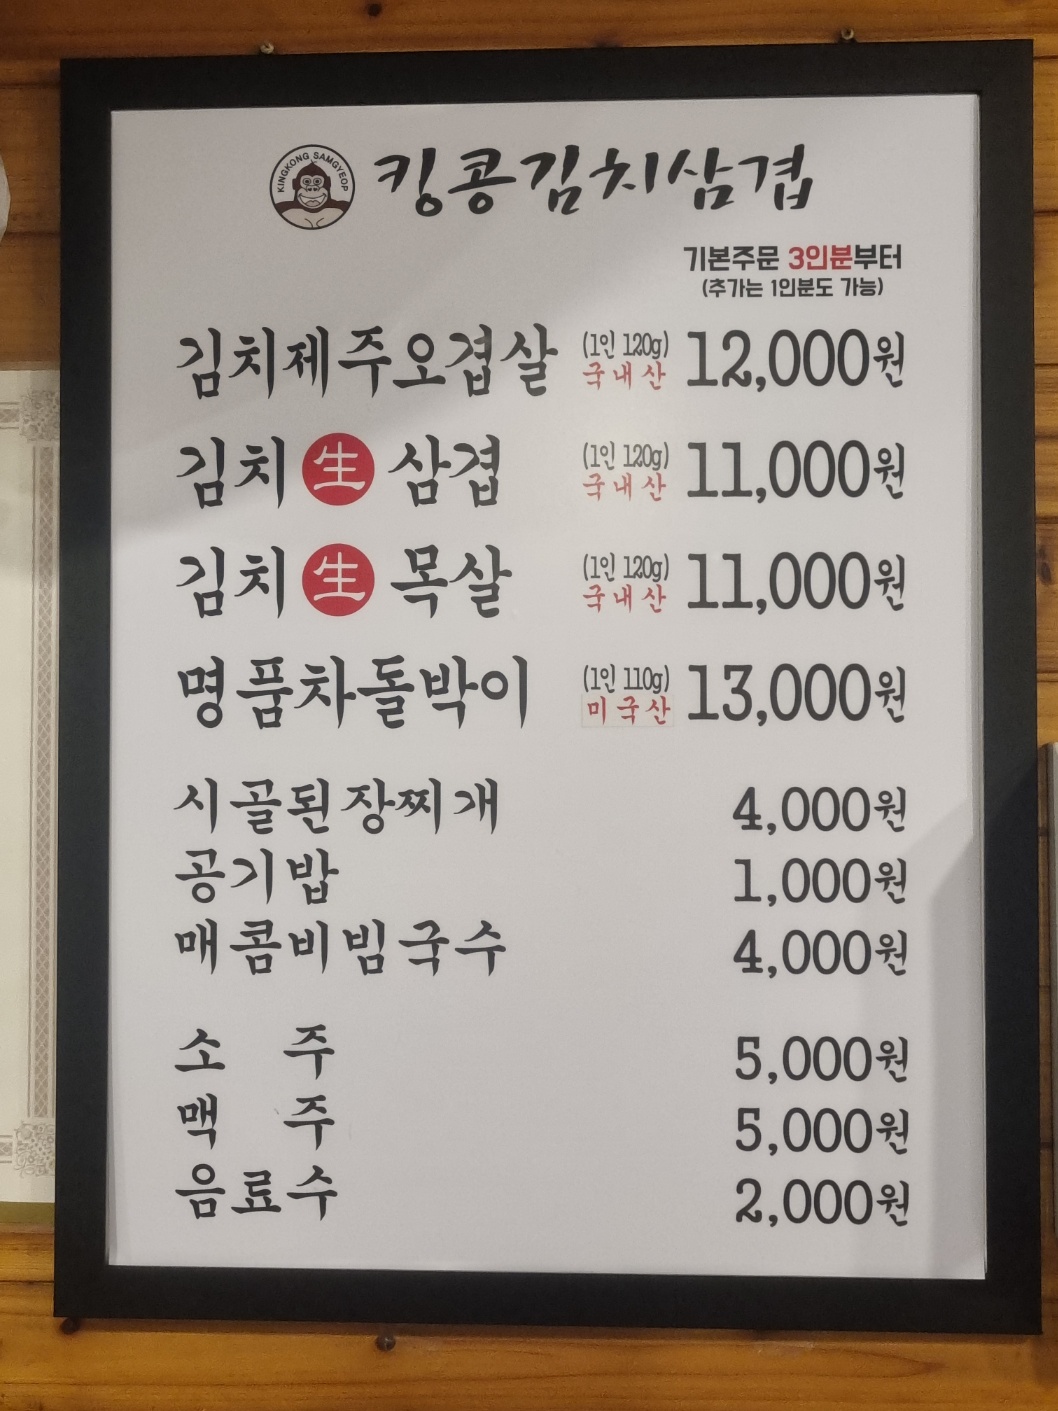 KINGKONG SAMGYEOP
킹콩김치삼겹
기본주문 3인분부터
(추가는 1인분도 가능)
김치제주오겹살 (1인 120g) 국내산 12,000원
김치 生 삼겹 (1인 120g) 국내산 11,000원
김치 生 목살 (1인 120g) 국내산 11,000원
명품차돌박이 (1인 110g) 미국산 13,000원
시골된장찌개 4,000원
공기밥 1,000원
매콤비빔국수 4,000원
소 주 5,000원
맥 주 5,000원
음료수 2,000원